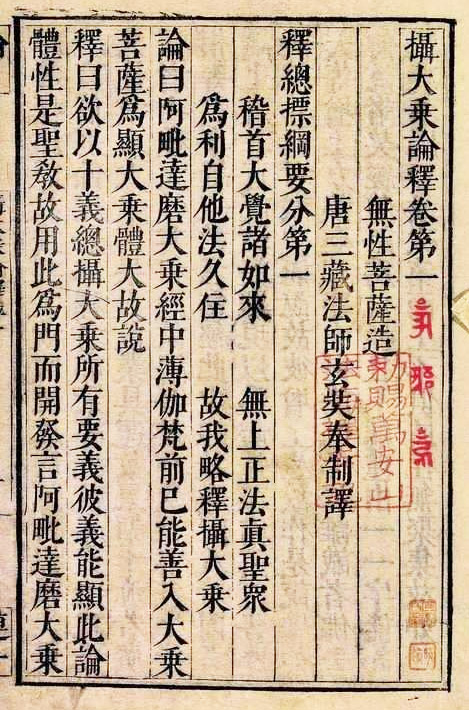 攝大乘論釋卷第一
無性菩薩造
唐三藏法師玄奘奉制譯
釋總標綱要分第一
稽首大覺諸如來　無上正法真聖衆
爲利自他法久住　故我略釋攝大乘
論曰阿毗達磨大乘經中薄伽梵前已能善入大乘
菩薩爲顯大乘體大故說
釋曰欲以十義總攝大乘所有要義彼義能顯此論
體性是聖教故用此爲門而開發言阿毗達磨大乘